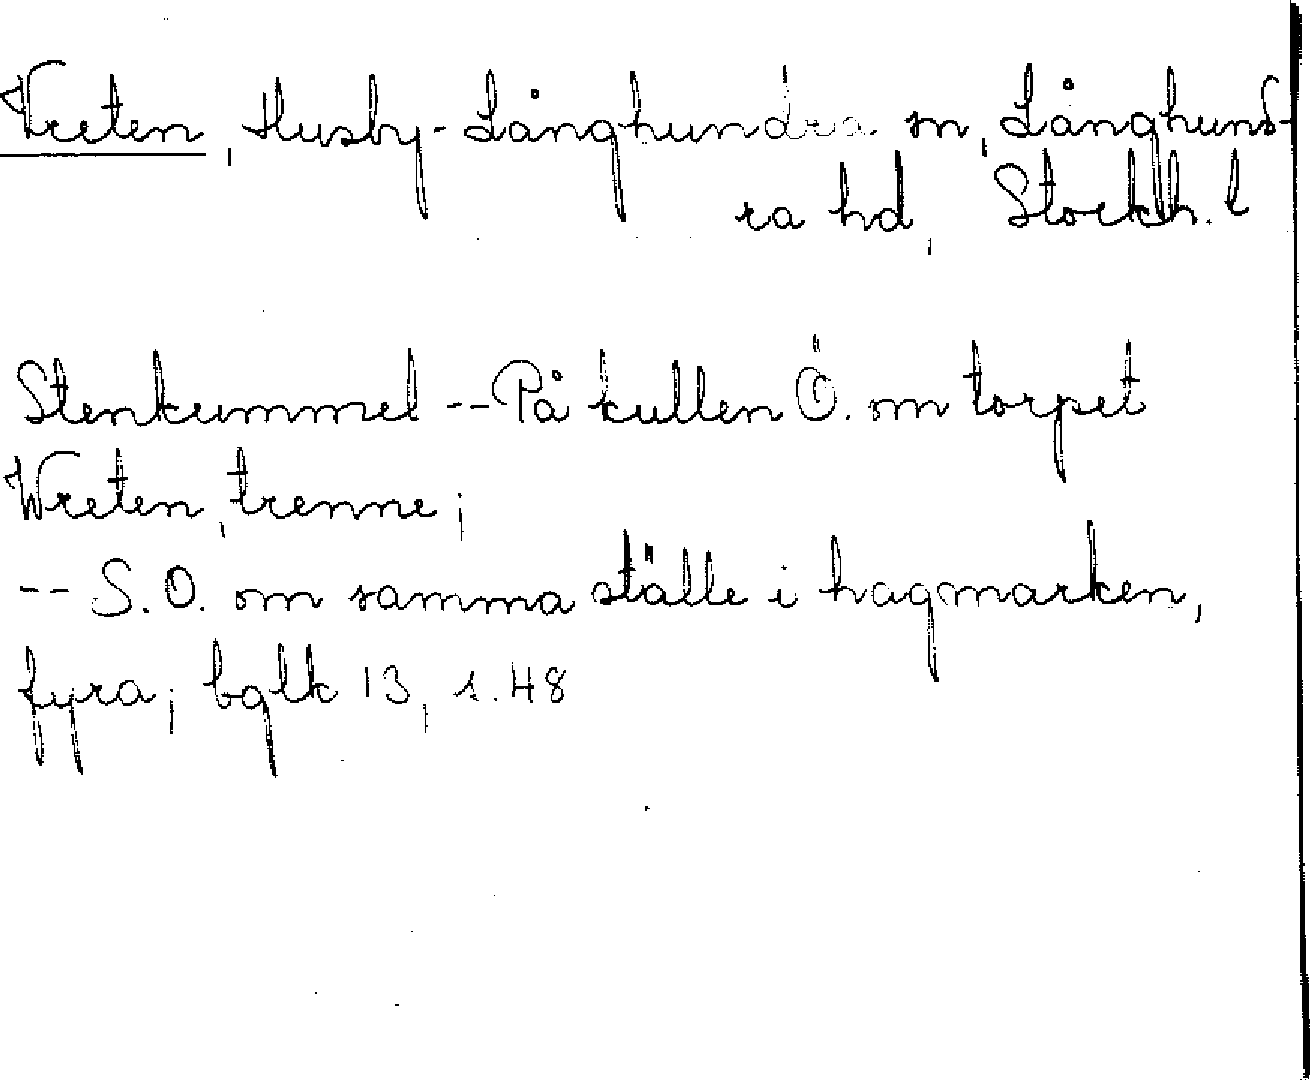 Vreten, Husby-Långhundra sn, Långhund-
ra hd, Stockh. l
Stenkummel -- På kullen Ö. om torpet
Wreten, trenne;
-- S.O. om samma ställe i hagmarken,
fyra; bglk 13, s. 48